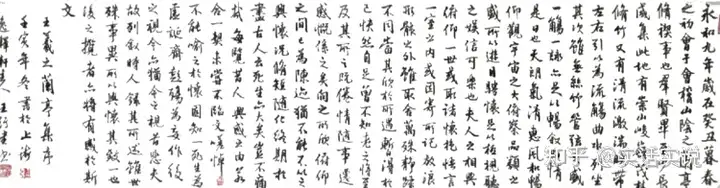 永和九年歲在癸丑暮春
之初會于會稽山陰之蘭亭
脩稧事也羣賢畢至少長
咸集此地有崇山峻領茂林
脩竹又有清流激湍暎帶
左右引以為流觴曲水列坐
其次雖無絲竹管弦之盛
一觴一詠亦足以暢敘幽情
是日也天朗氣清惠風和暢
仰觀宇宙之大俯察品類之
盛所以遊目騁懷足以極視聽
之娛信可樂也夫人之相與
俯仰一世或取諸懷抱悟言
一室之內或因寄所託放浪
形骸之外雖取舍萬殊靜躁
不同當其欣於所遇暫得於
己怏然自足曾不知老之將至
及其所之既倦情隨事遷
感慨係之矣向之所欣俛仰
之間已為陳迹猶不能不以之
興懷況脩短隨化終期於
盡古人云死生亦大矣豈不痛
哉每覽昔人興感之由若
合一契未嘗不臨文嗟悼
不能喻之於懷固知一死生為
虛誕齊彭殤為妄作後
之視今亦猶今之視昔悲夫
故列敘時人錄其所述雖世
殊事異所以興懷其致一也
後之攬者亦將有感於斯
文
王羲之蘭亭集序
壬寅年冬書於上海
軒主人王
知乎 @实话实说